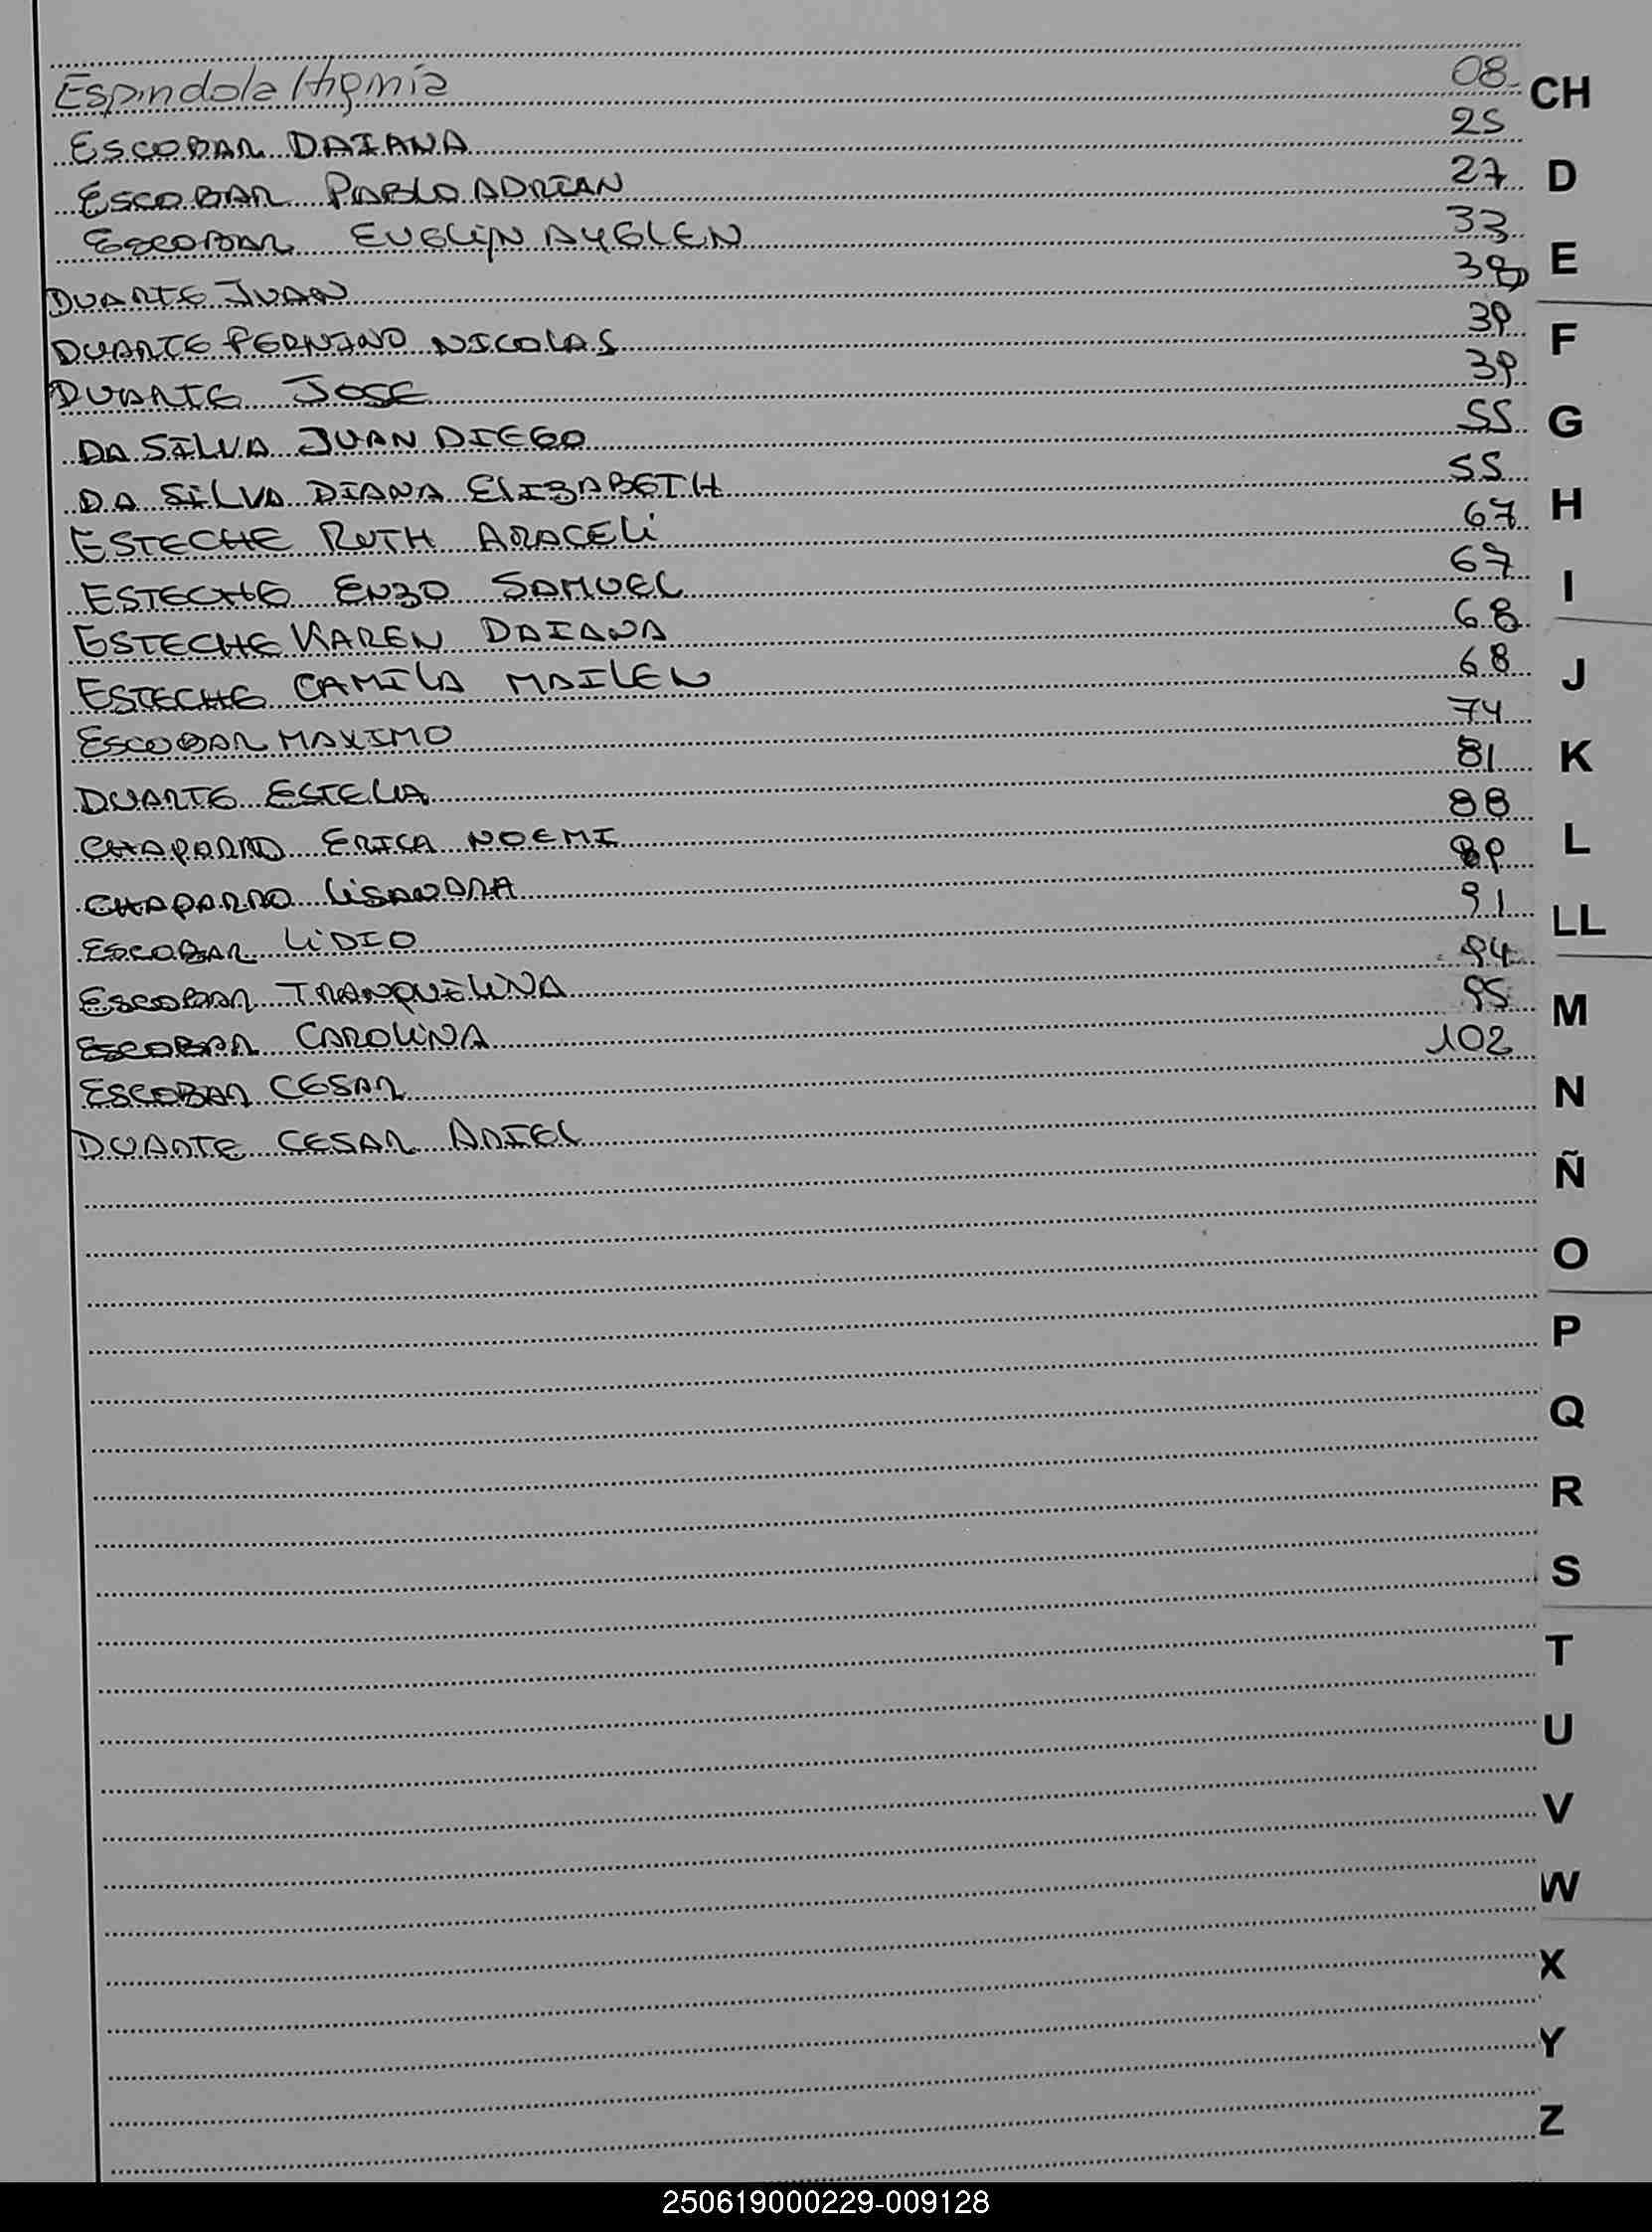 Espindola 08 CH
ESCOBAR DAIANA 25
ESCOBAR PABLO ADRIAN 27 D
ESCOBAR EVELIN AYELEN 33
DUARTE JUAN 38 E
DUARTE PERNINO NICOLAS 39 F
DUARTE JOSE 39
DA SILVA JUAN DIEGO 55 G
DA SILVA DIANA ELIZABETH 55
ESTECHE RUTH ARACELI 67 H
ESTECHE ENZO SAMUEL 67 I
ESTECHE KAREN DAIANA 68
ESTECHE CAMILA MAILEN 68 J
ESCOBAR MAXIMO 74
DUARTE ESTELA 81 K
CHAPARRO ERICA NOEMI 88
CHAPARRO LISANDRA 89 L
ESCOBAR LIDIO 91 LL
ESCOBAR TRANQUILINA 94
ESCOBAR CAROLINA 95 M
ESCOBAR CESAR 102
DUARTE CESAR ARIEL N
Ñ
O
P
Q
R
S
T
U
V
W
X
Y
Z
250619000229-009128